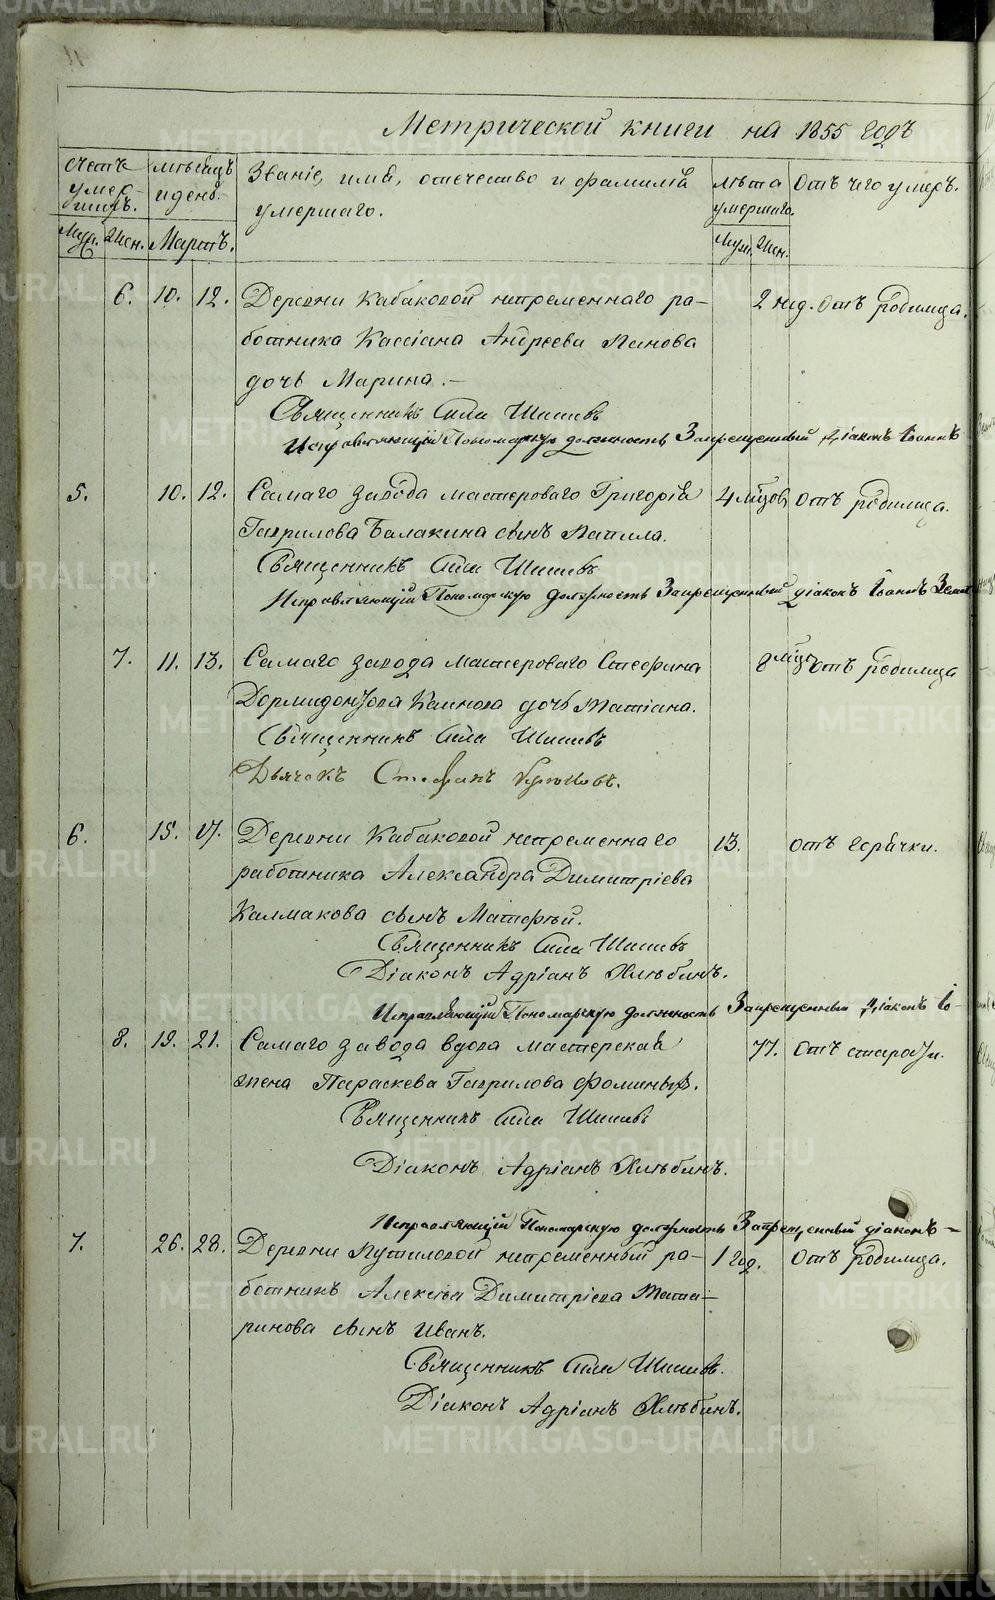 Метрической книги на 1855 годъ
счетъ умер-шихъ.
мѣсяцъ и день.
Званіе, имя, отечество и фамилія умершаго.
лѣта умершаго.
Отъ чего умеръ.
Муж. Жен. Мартъ. Муж. Жен.
6. 10. 12. Деревни Кабаковой непременнаго ра- 2 нед. отъ родимца.
ботника Кассіана Андреева Панова
дочь Марина.—
Священникъ Сила Шишевъ
Исправляющій Пономарскую должность Запрещенный діаконъ Іоаннъ
5. 10. 12. Самаго завода мастероваго Григорія 4 мѣсов отъ родимца.
Гаврилова Балакина сынъ
Священникъ Сила Шишевъ
Исправляющій Пономарскую должность Запрещенный діаконъ Іоаннъ
7. 11. 13. Самаго завода мастероваго Стефана 8 мѣсо отъ родимца
Дормидонтова Каинова дочь Татіана.
Священникъ Сила Шишевъ
Дьячекъ Стефанъ
6. 15. 17. Деревни Кабаковой непременнаго 13. отъ горячки.
работника Александра Димитріева
Калмакова сынъ Матфей.
Священникъ Сила Шишевъ
Діаконъ Адріанъ Хлѣбинъ.
Исправляющій Пономарскую должность Запрещенный діаконъ Іо-
8. 19. 21. Самаго завода вдова мастерская 77. отъ старости.
жена Параскева Гаврилова Фоминыхъ.
Священникъ Сила Шишевъ
Діаконъ Адріанъ Хлѣбинъ.
Исправляющій Пономарскую должность Запрещенный діаконъ —
7. 26. 28. Деревни Путиловой непременный ра- 1 год. отъ родимца.
ботникъ Алексѣя Димитріева Тата-
ринова сынъ Иванъ.
Священникъ Сила Шишевъ.
Діаконъ Адріанъ Хлѣбинъ.
METRIKI.GASO-URAL.RU